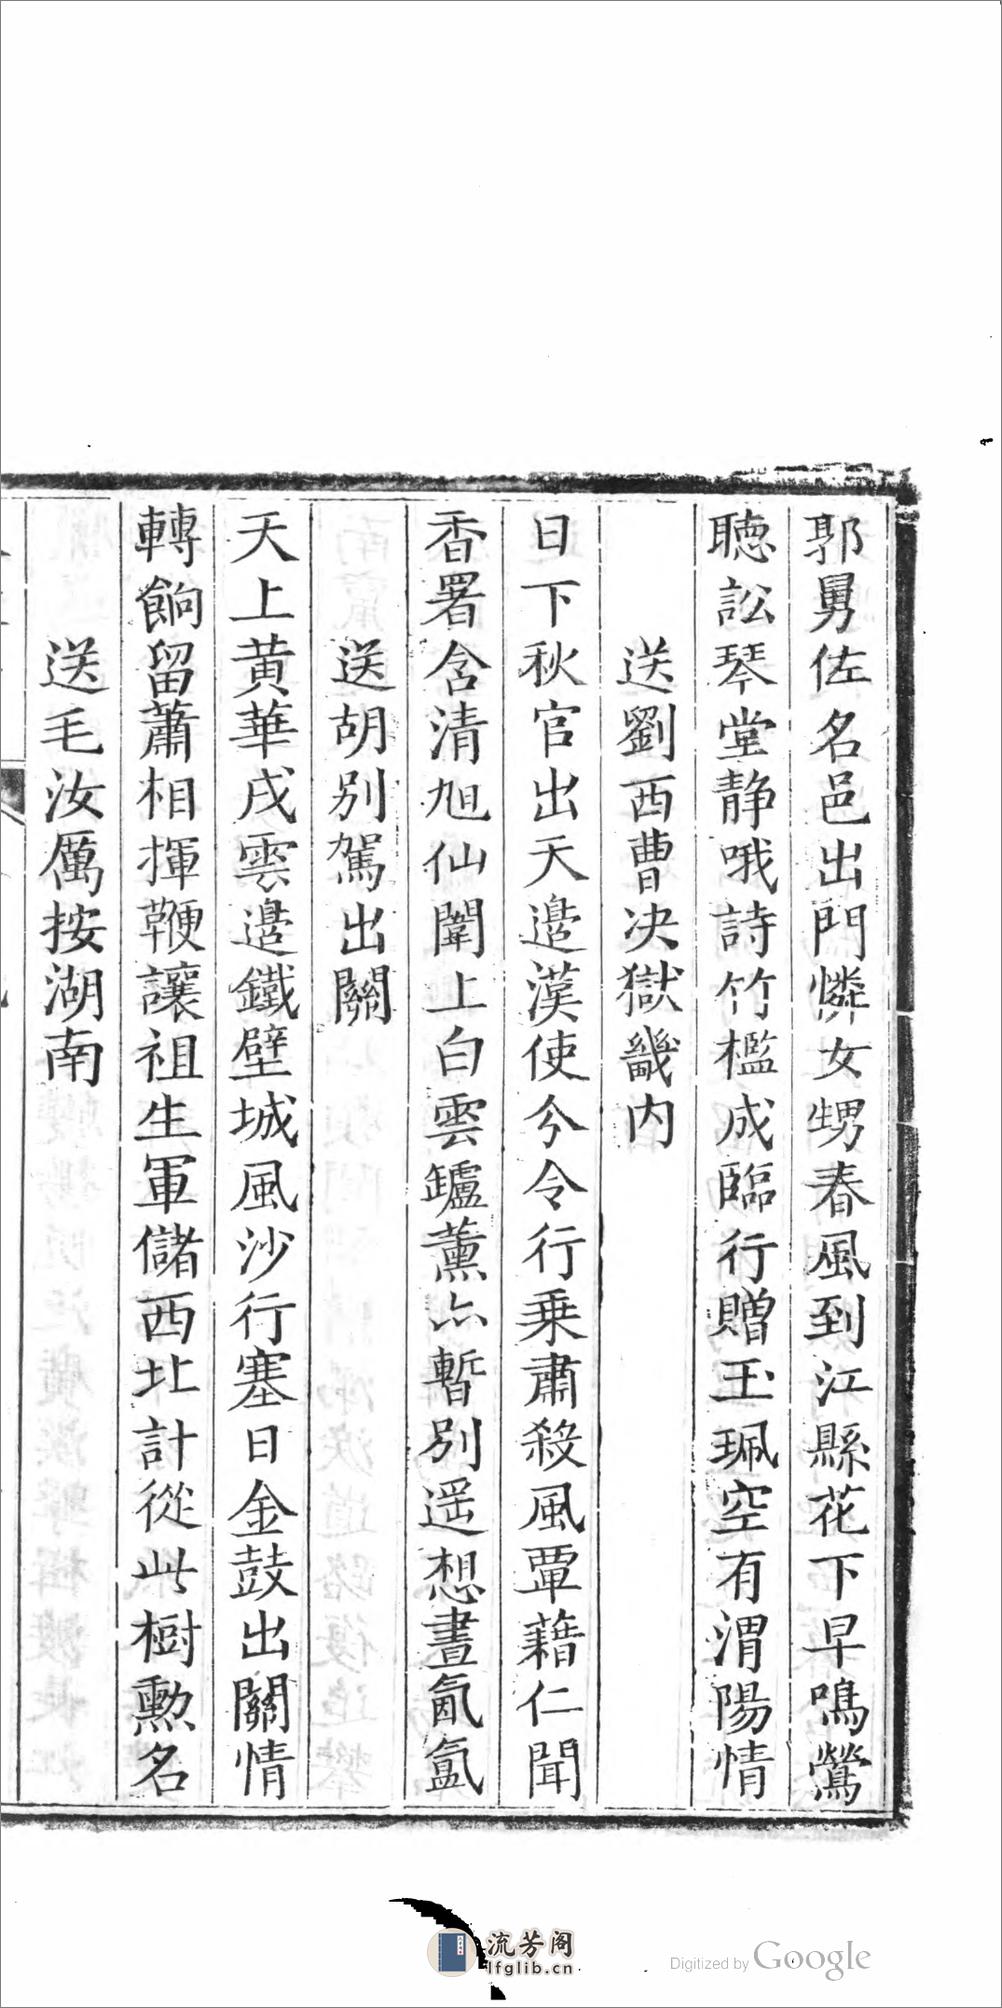 郭舅佐名邑出門憐女甥春風到江縣花下早鳴鶯
聴訟琴堂静哦詩竹檻成臨行贈玉珮空有渭陽情
送劉西曹决獄畿内
日下秋官出天邉漢使分令行乗肅殺風覃藉仁聞
香署含清旭仙闈上白雲鑪薰亦暫别遥想晝氤氲
送胡别駕出關
天上黄華戍雲邉鐵壁城風沙行塞日金鼓出關情
轉餉留蕭相揮鞭讓祖生軍儲西北計從此樹勲名
送毛汝厲按湖南
流芳阁
lfglib.cn
Digitized by Google